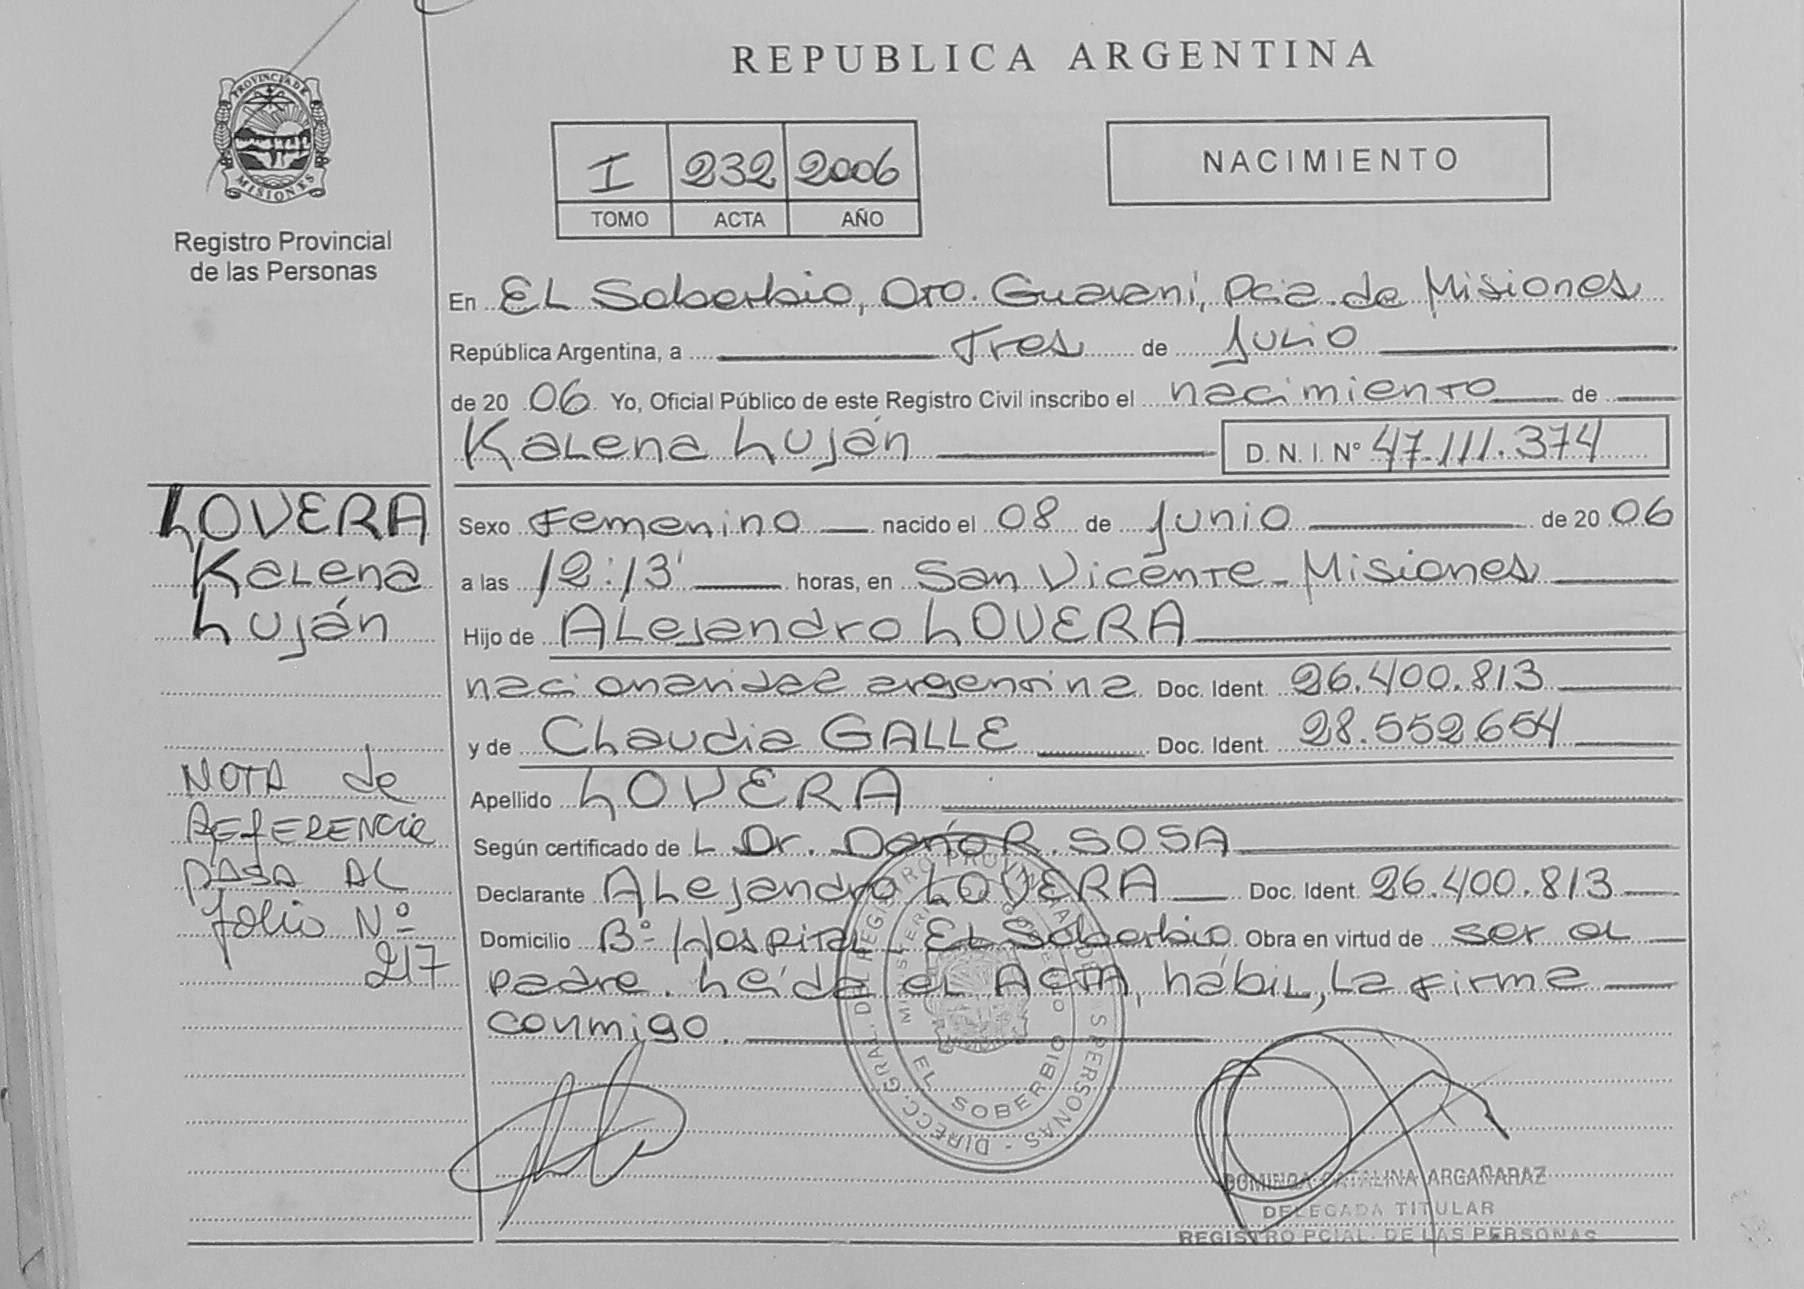 REPUBLICA ARGENTINA
PROVINCIA DE
MISIONES
Registro Provincial
de las Personas
I 232 2006
TOMO ACTA AÑO
NACIMIENTO
En EL Soberbio, Dto. Guaraní, Pcia de Misiones
República Argentina, a Tres de Julio
de 20 06 Yo, Oficial Público de este Registro Civil inscribo el nacimiento de
Kalena Luján D. N. I. Nº 47.111.374
LOVERA
Kalena
Luján
Sexo Femenino nacido el 08 de Junio de 20 06
a las 12:13' horas, en San Vicente - Misiones
Hijo de Alejandro LOVERA
nacionalidad argentina Doc. Ident. 26.400.813
y de Claudia GALLE Doc. Ident. 28.552.654
Apellido LOVERA
Según certificado de L Dr. R. SOSA
Declarante Alejandro LOVERA Doc. Ident. 26.400.813
Domicilio Bº Hospital - El Soberbio Obra en virtud de ser el
padre. Leída el ACTA, hábil, la firma
conmigo.
NOTA de
REFERENCIA
PASA AL
folio Nº
217
DIRECC. GRAL. DEL REGISTRO PROVINCIAL DE LAS PERSONAS
EL SOBERBIO
DOMINGA CATALINA ARGAÑARAZ
DELEGADA TITULAR
REGISTRO PCIAL. DE LAS PERSONAS